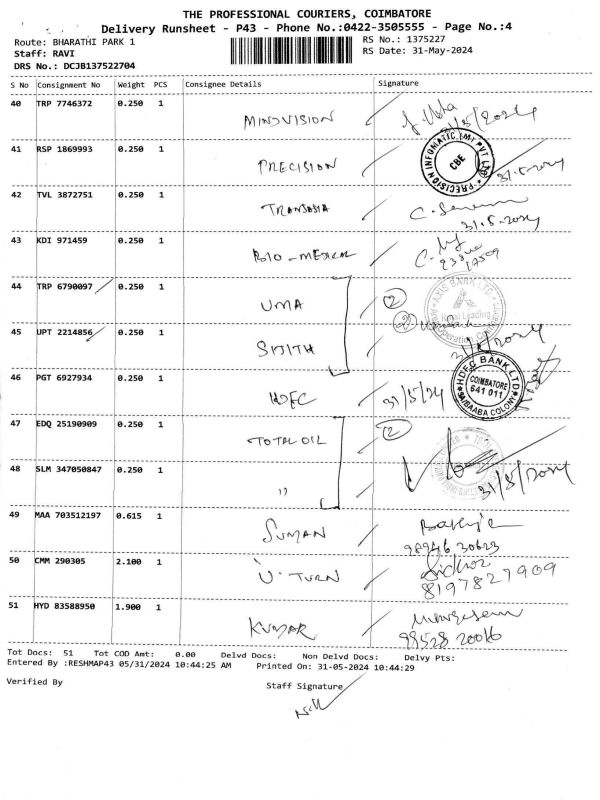 THE PROFESSIONAL COURIERS, COIMBATORE
Delivery Runsheet - P43 - Phone No.:0422-3505555 - Page No.:4
Route: BHARATHI PARK 1
RS No.: 1375227
Staff: RAVI
RS Date: 31-May-2024
DRS No.: DCJB137522704
S No Consignment No Weight PCS Consignee Details Signature
40 TRP 7746372 0.250 1
MINDVISION
41 RSP 1869993 0.250 1
PRECISION
PRECISION INFOMATIC (M) PVT Ltd
CBE
31.5.2024
42 TVL 3872751 0.250 1
TRANSASIA
31.5.2024
43 KDI 971459 0.250 1
BIO-MEXCR
44 TRP 6790097 0.250 1
UMA
2
AXIS BANK LTD.
45 UPT 2214856 0.250 1
2
SIJITH
31/5/2024
46 PGT 6927934 0.250 1
HDFC
31/5/24
HDFC BANK LTD
COIMBATORE
641 011
SAIBAABA COLONY
47 EDQ 25190909 0.250 1
TOTAL OIL
2
48 SLM 347050847 0.250 1
"
31/5/2024
49 MAA 703512197 0.615 1
SUMAN
98946 30623
50 CMM 290305 2.100 1
U-TURN
8197827909
51 HYD 83588950 1.900 1
KUMAR
99528 20016
Tot Docs: 51 Tot COD Amt: 0.00 Delvd Docs: Non Delvd Docs: Delvy Pts:
Entered By :RESHMAP43 05/31/2024 10:44:25 AM Printed On: 31-05-2024 10:44:29
Verified By
Staff Signature